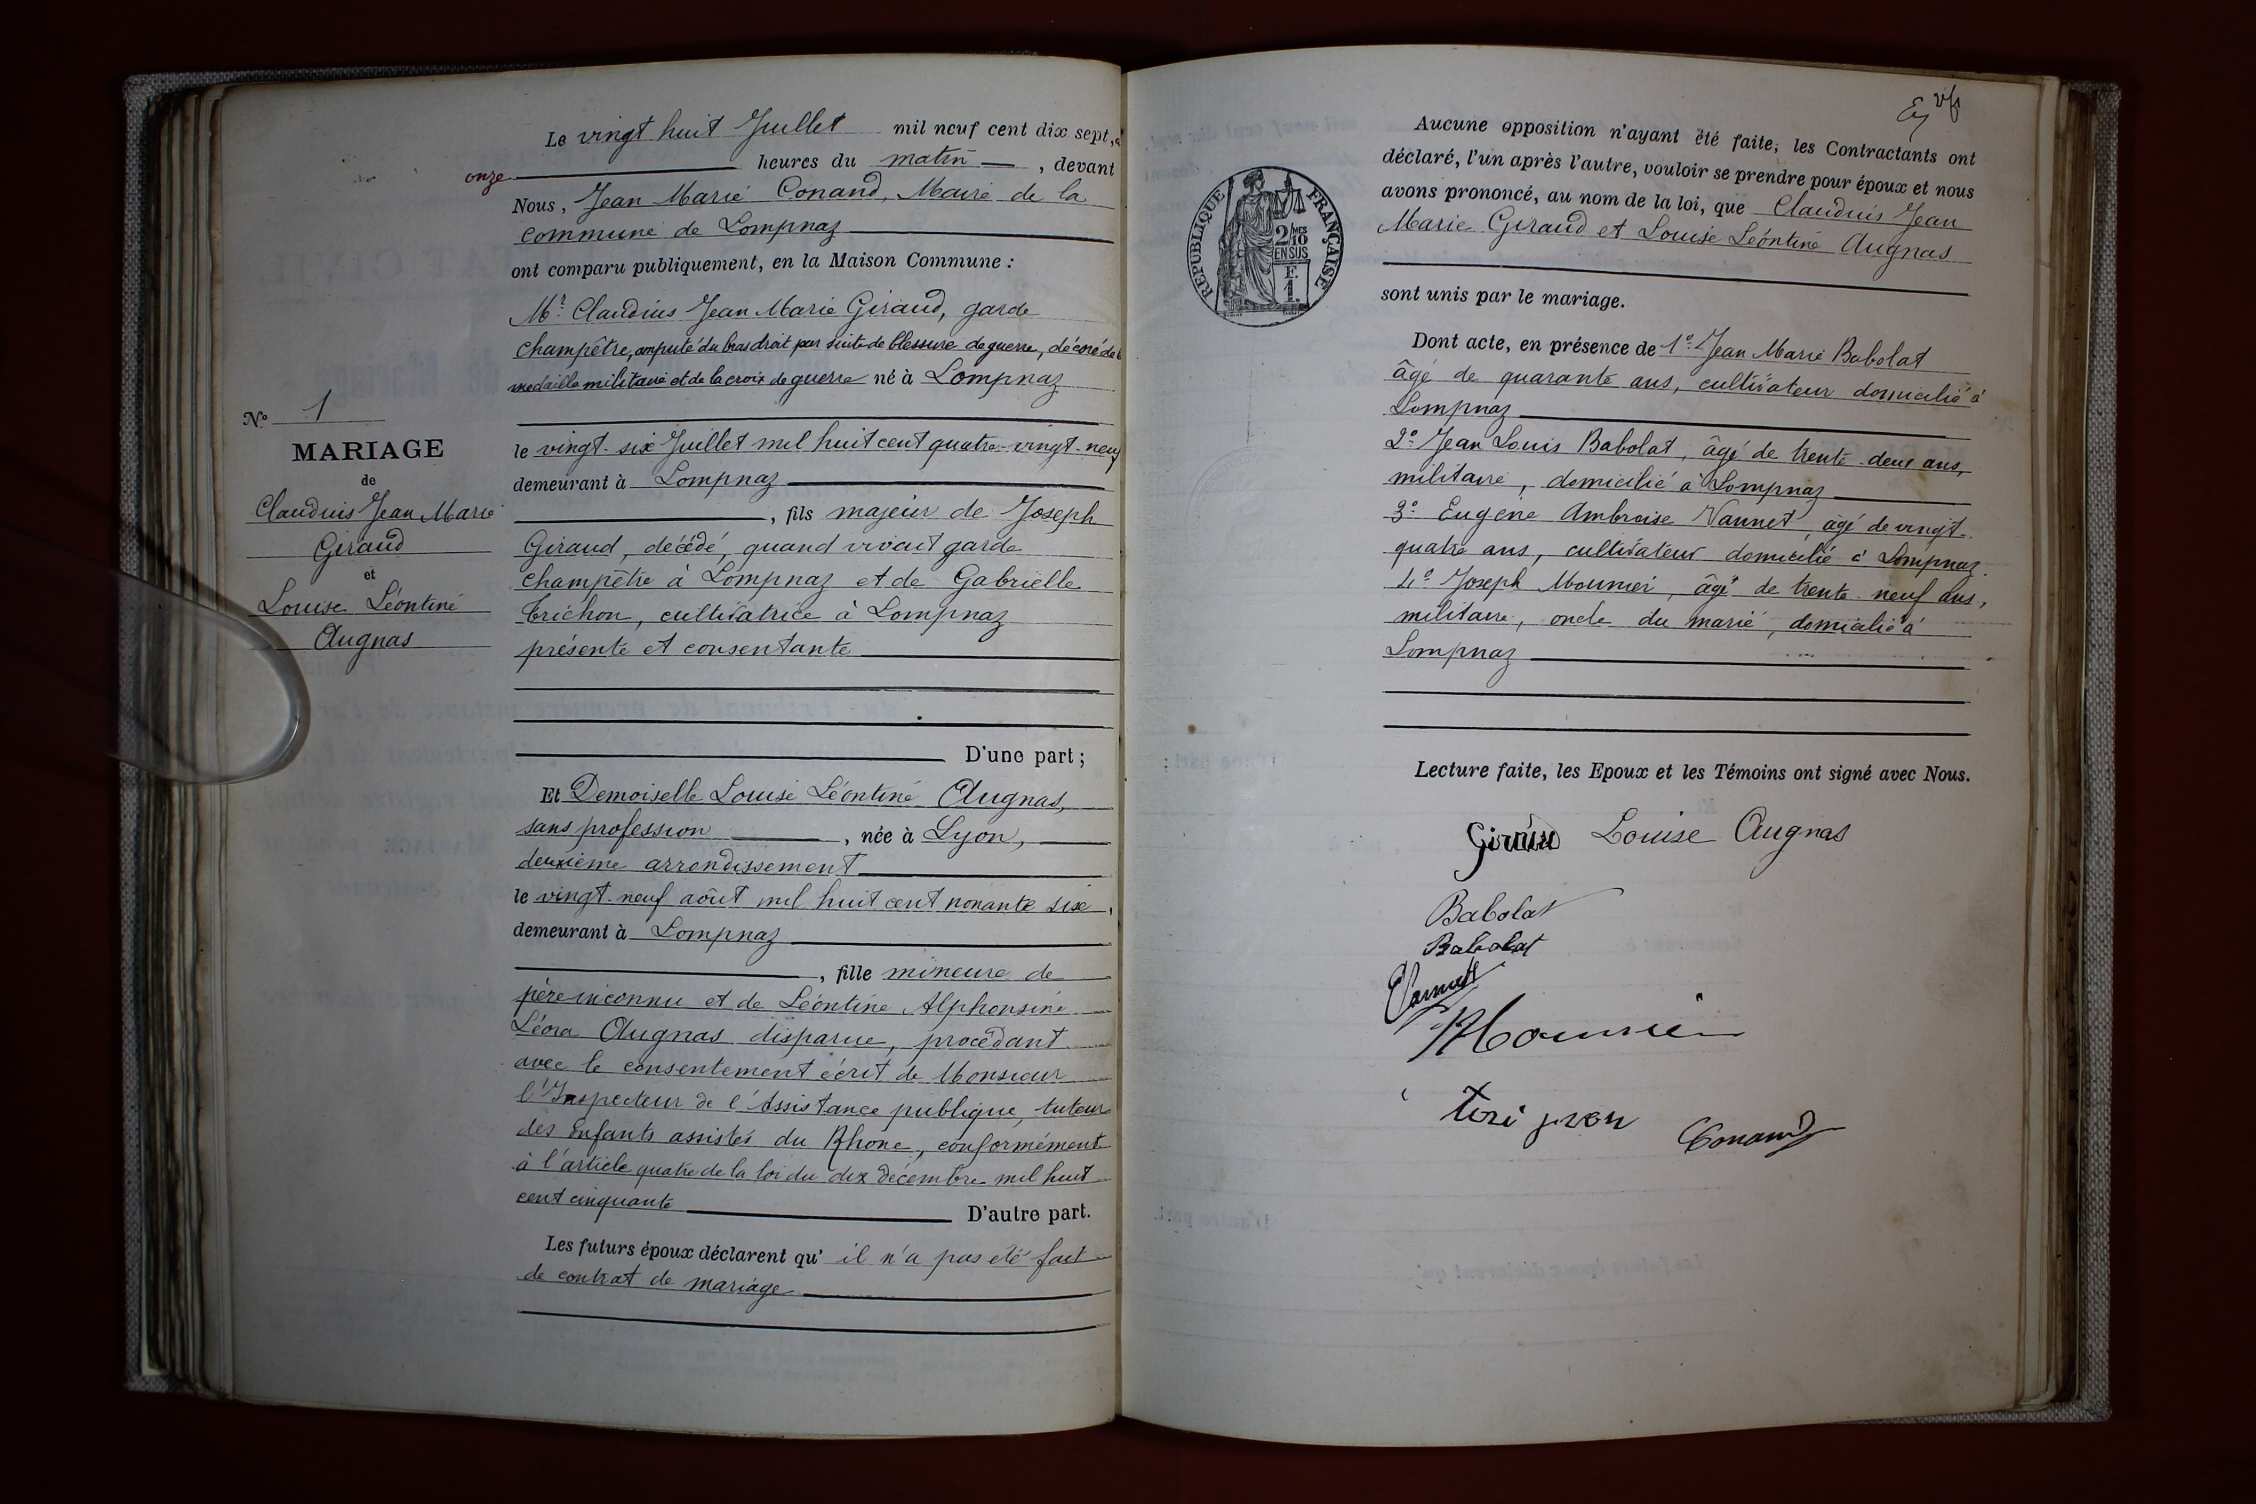 Le vingt huit Juillet mil neuf cent dix sept, à
onze heures du matin, devant
Nous, Jean Marie Conand, Maire de la
commune de Lompnaz
ont comparu publiquement, en la Maison Commune :
Mr. Claudius Jean Marie Giraud, garde
champêtre, amputé du bras droit par suite de blessure de guerre, décoré de la
medaille militaire et de la croix de guerre né à Lompnaz
le vingt-six Juillet mil huit cent quatre-vingt-neuf
demeurant à Lompnaz
, fils majeur de Joseph
Giraud, décédé, quand vivait garde
champêtre à Lompnaz et de Gabrielle
Trichon, cultivatrice à Lompnaz
présente et consentante
D'une part ;
Et Demoiselle Louise Léontine Augnas,
sans profession, née à Lyon,
deuxième arrondissement
le vingt-neuf août mil huit cent nonante six,
demeurant à Lompnaz
, fille mineure de
père inconnu et de Léontine Alphonsine
Léora Augnas disparue, procédant
avec le consentement écrit de Monsieur
l'Inspecteur de l'Assistance publique, tuteur
des Enfants assistés du Rhone, conformément
à l'article quatre de la loi du dix décembre mil huit
cent cinquante D'autre part.
Les futurs époux déclarent qu' il n'a pas été fait
de contrat de mariage
No 1
MARIAGE
de
Claudius Jean Marie
Giraud
et
Louise Léontine
Augnas
RÉPUBLIQUE FRANÇAISE
2/10MES
EN SUS
F.
1.
Aucune opposition n'ayant été faite, les Contractants ont
déclaré, l'un après l'autre, vouloir se prendre pour époux et nous
avons prononcé, au nom de la loi, que Claudius Jean
Marie Giraud et Louise Léontine Augnas
sont unis par le mariage.
Dont acte, en présence de 1o Jean Marie Babolat
âgé de quarante ans, cultivateur domicilié à
Lompnaz
2o Jean Louis Babolat, âgé de trente-deux ans,
militaire, domicilié à Lompnaz
3o Eugène Ambroise Vannet, âgé de vingt-
quatre ans, cultivateur domicilié à Lompnaz.
4o Joseph Mounier, âgé de trente-neuf ans,
militaire, oncle du marié, domicilié à
Lompnaz
Lecture faite, les Epoux et les Témoins ont signé avec Nous.
Giraud Louise Augnas
Babolat
Babolat
Vannet
Mounier
Conand